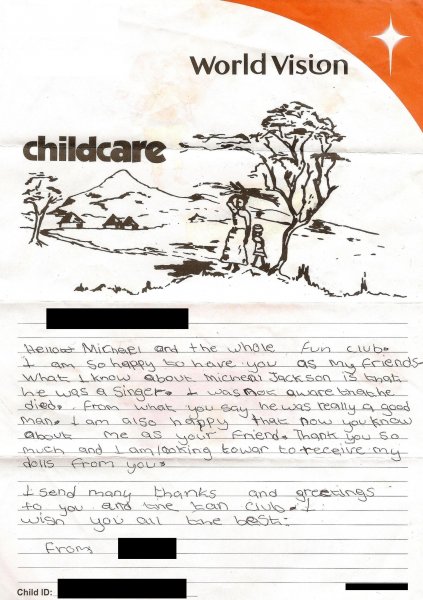 World Vision
childcare
Helloot Michael and the whole fun club.
I am so happy to have you as my friends
What I know about Micheal Jackson is that
he was a singer. I was not aware that he
died. From what you say he was really a good
man. I am also happy that now you know
about me as your Friend. Thank you so
much and I am looking towar to receive my
dolls from you.
I send many thanks and greetings
to you and the fan club. I
wish you all the best.
From
Child ID: